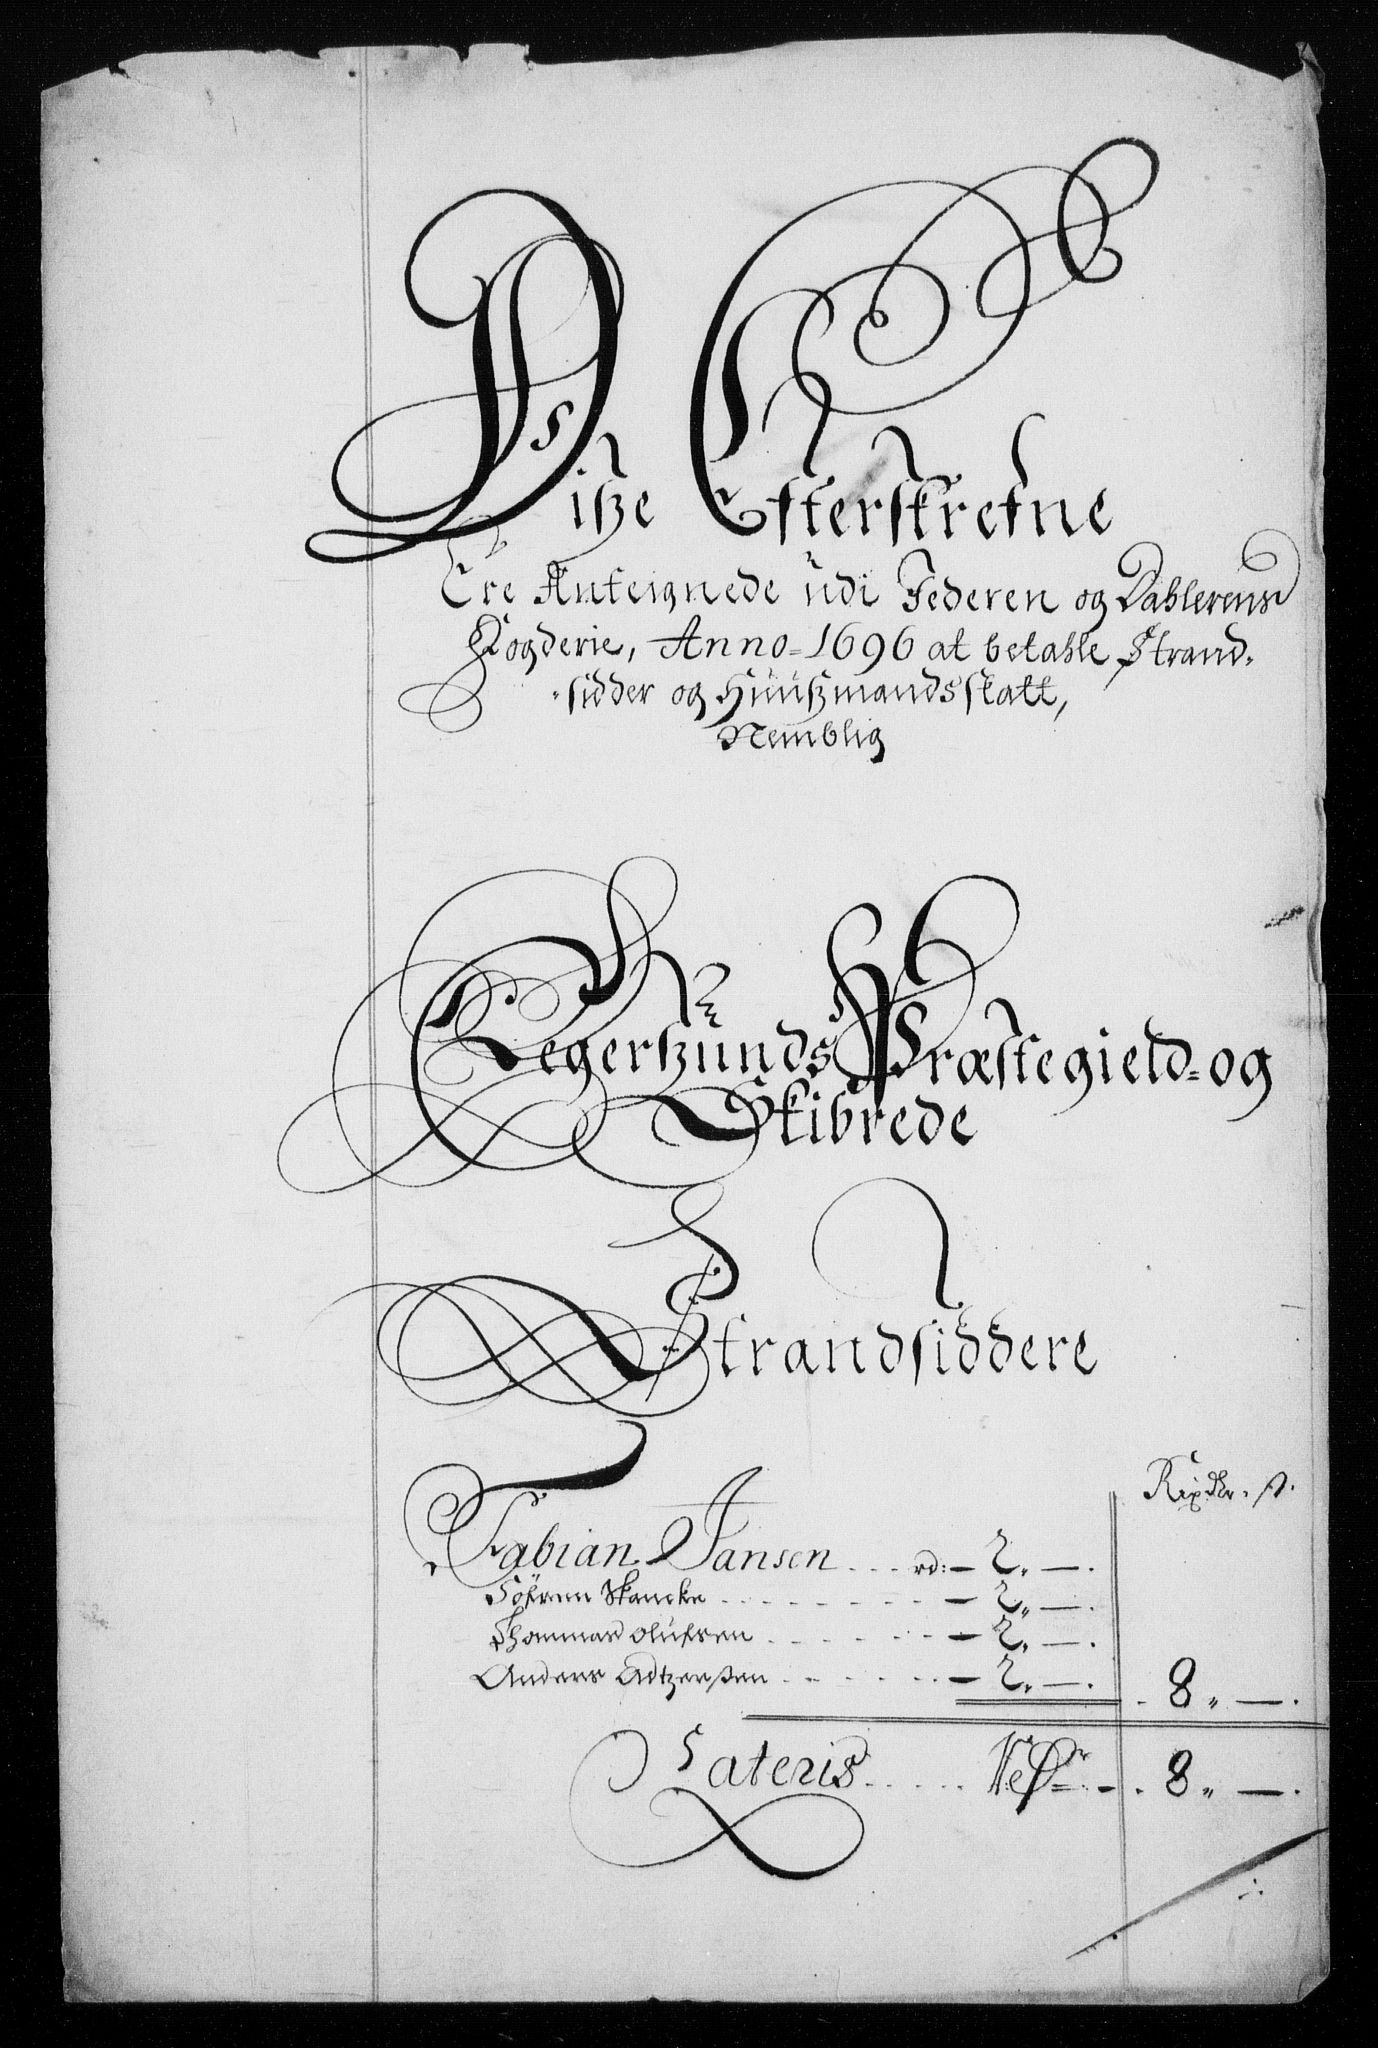 Diße Efterskrefne
Ere Anteignede udi Jederen og Dahlerens
Fogderie, Anno=1696 at betahle Strand=
=sidder og Huußmands skatt,
Nemblig
Eegerßunds Præstegield=og
Skibrede
Strandsiddere
Rixdlr. ß.
Fabian Jansen .... rd:— 2. —.
Söfren Skancke — 2. —.
Thommas Olufsen — 2. —.
Anders Adtzerßen — 2. —. 8. —.
Lateris 8. —.